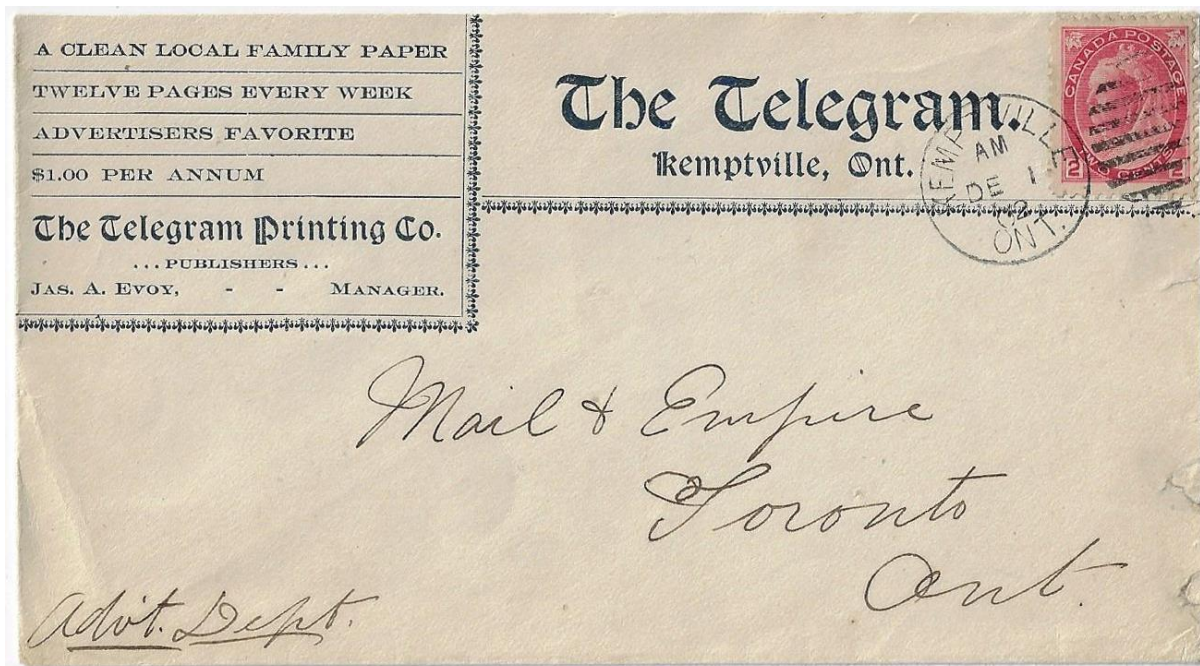 A CLEAN LOCAL FAMILY PAPER
TWELVE PAGES EVERY WEEK
ADVERTISERS FAVORITE
$1.00 PER ANNUM
The Telegram Printing Co.
...PUBLISHERS...
JAS. A. EVOY, - - MANAGER.
The Telegram.
Kemptville, Ont.
CANADA POSTAGE
2 TWO CENTS 2
KEMPTVILLE
AM
DE 1
02
ONT.
Mail & Empire
Toronto
Ont.
Advt. Dept.